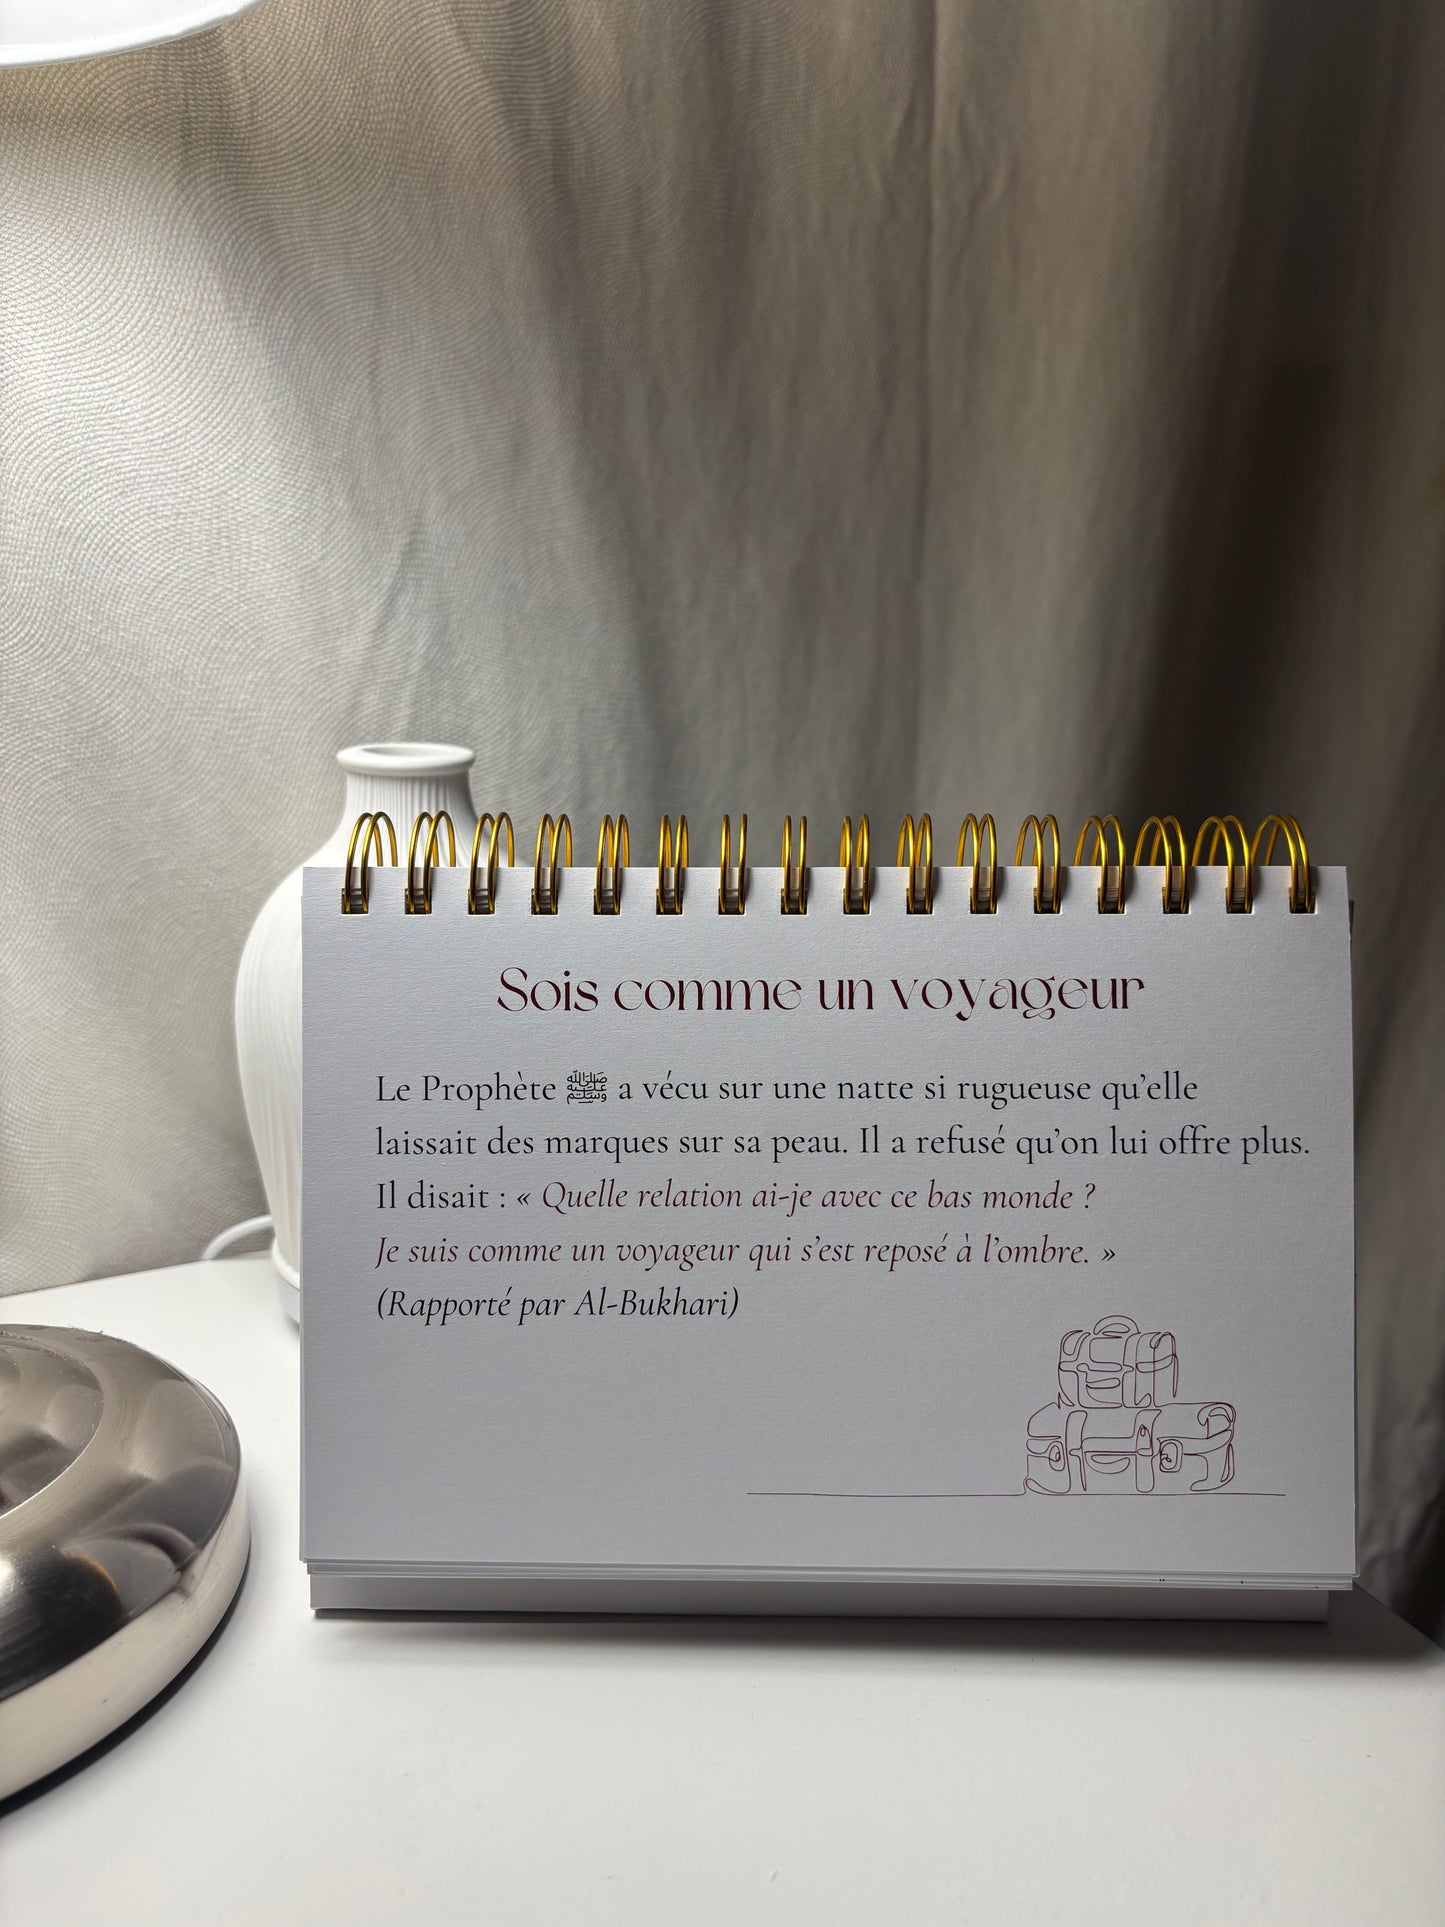 Sois comme un voyageur
Le Prophète ﷺ a vécu sur une natte si rugueuse qu’elle
laissait des marques sur sa peau. Il a refusé qu’on lui offre plus.
Il disait : « Quelle relation ai-je avec ce bas monde ?
Je suis comme un voyageur qui s’est reposé à l’ombre. »
(Rapporté par Al-Bukhari)